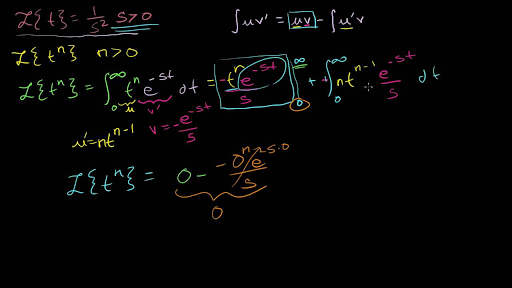 ℒ{t} = 1/s² s>0 ∫uv' = uv - ∫u'v
ℒ{tⁿ} n>0
ℒ{tⁿ} = ∫₀^∞ tⁿ e^(-st) dt = -tⁿe^(-st)/s |₀^∞ + +∫₀^∞ nt^(n-1) e^(-st)/s dt
u v'
u' = nt^(n-1) v = -e^(-st)/s
ℒ{tⁿ} = 0 - -0ⁿe^(-s·0)/s
0